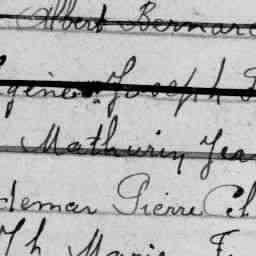 Albert Bernard
gène Joseph
Mathurin Jea
demar Pierre Cl
Th Marie F